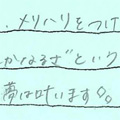 ．メリハリをつけ
かなるさ"といク
夢は叶います